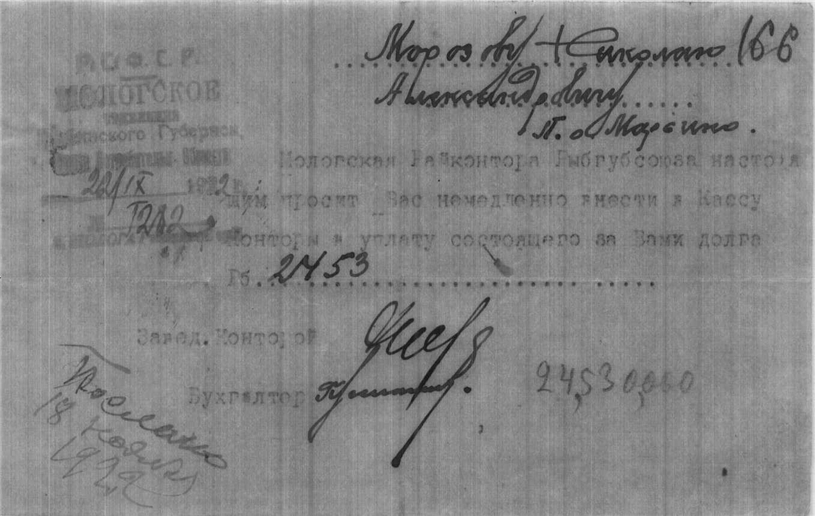 Морозову Николаю 166
Александровичу
п. о Марьино.
Р. С. Ф. С. Р.
МОЛОГСКОЕ
22/IX 1922 г.
1212
Мологская Райконтора Рыбгубсоюза настоя
щим просит Вас немедленно внести в Кассу
Конторы в уплату состоящего за Вами долга
Рб. 2453
Завед. Конторой
Бухгалтор
24,530,000
Послано
18 ноября
1922